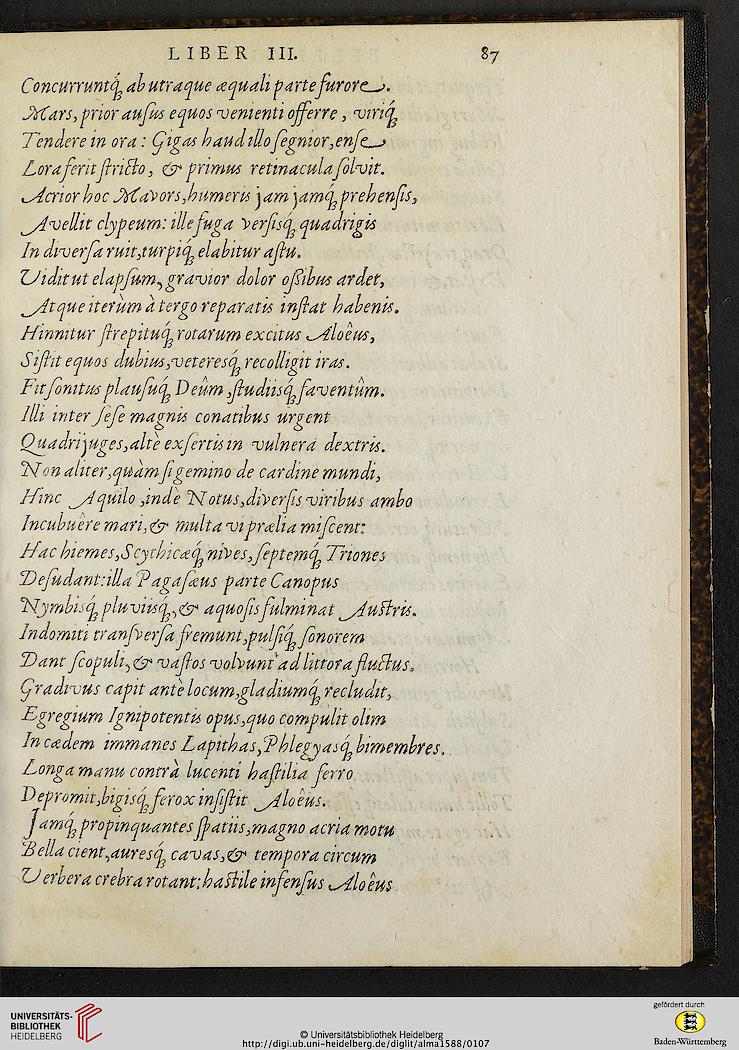 LIBER III. 87
Concurruntq́; ab utraque æquali parte furore.
Mars, prior ausus equos venienti offerre, viriq́;
Tendere in ora: Gigas haud illo segnior, ense
Lora ferit stricto, & primus retinacula solvit.
Acrior hoc Mavors, humeris jam jamq́; prehensis,
Avellit clypeum: ille fuga versisq́; quadrigis
In diversa ruit, turpiq́; elabitur astu.
Vidit ut elapsum, gravior dolor oßibus ardet,
Atque iterùm à tergo reparatis instat habenis.
Hinnitur strepituq́; rotarum excitus Aloêus,
Sistit equos dubius, veteresq́; recolligit iras.
Fit sonitus plausuq́; Deûm, studiisq́; faventûm.
Illi inter sese magnis conatibus urgent
Quadrijuges, altè exsertis in vulnera dextris.
Non aliter, quàm si gemino de cardine mundi,
Hinc Aquilo, inde Notus, diversis viribus ambo
Incubuêre mari, & multa vi prælia miscent:
Hac hiemes, Scythicæq́; nives, septemq́; Triones
Desudant: illa Pagasæus parte Canopus
Nymbisq́; pluviisq́;, & aquosis fulminat Austris.
Indomiti transversa fremunt, pulsiq́; sonorem
Dant scopuli, & vastos volvunt ad littora fluctus.
Gradivus capit antè locum, gladiumq́; recludit,
Egregium Ignipotentis opus, quo compulit olim
In cædem immanes Lapithas, Phlegyasq́; bimembres.
Longa manu contrà lucenti hastilia ferro
Depromit, bigisq́; ferox insistit Aloêus.
Jamq́; propinquantes spatiis, magno acria motu
Bella cient, auresq́; cavas, & tempora circum
Verbera crebra rotant: hastile infensus Aloêus
UNIVERSITÄTS-
BIBLIOTHEK
HEIDELBERG
© Universitätsbibliothek Heidelberg
http://digi.ub.uni-heidelberg.de/diglit/alma1588/0107
gefördert durch
Baden-Württemberg